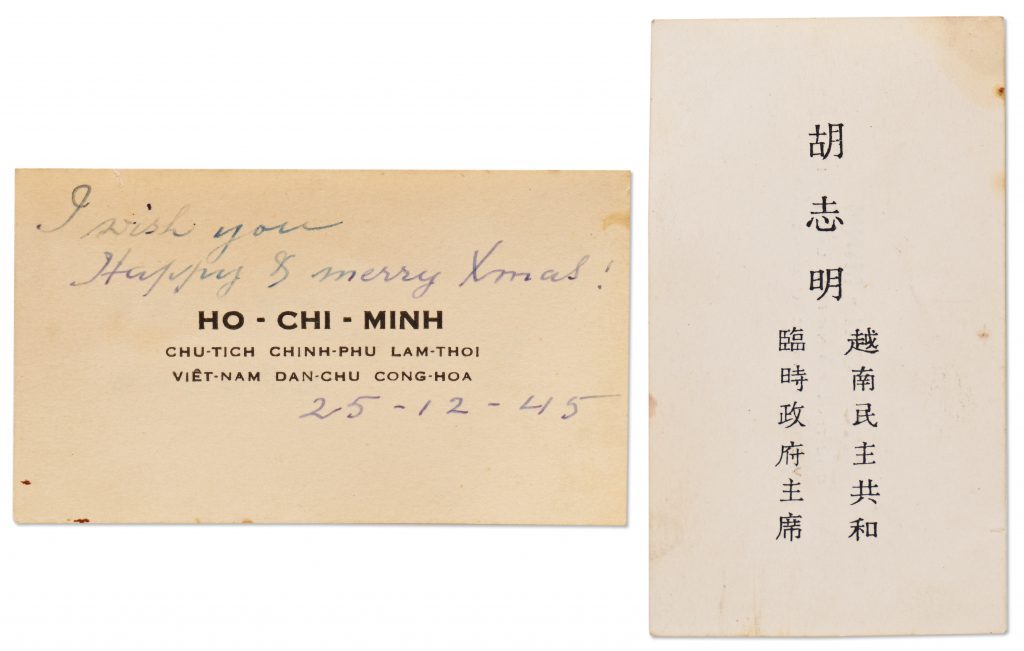 I wish you
Happy & merry Xmas!
HO - CHI - MINH
CHU-TICH CHINH-PHU LAM-THOI
VIÊT-NAM DAN-CHU CONG-HOA
25-12-45
胡志明
越南民主共和
臨時政府主席